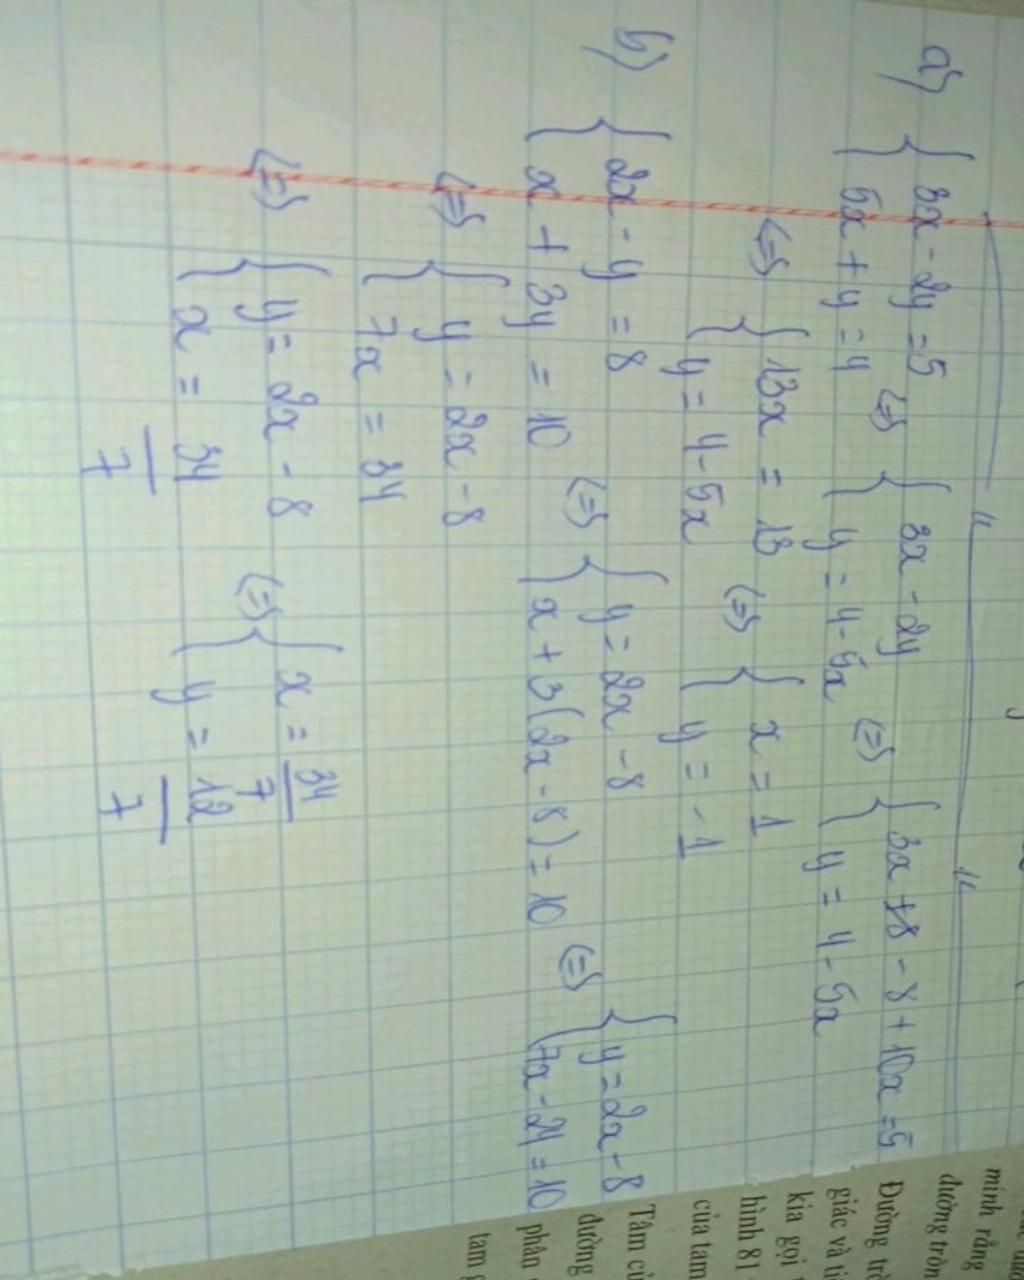 a) { 3x - 2y = 5 <=> { 3x - 2y <=> { 3x - 8 + 10x = 5
{ 5x + y = 4 { y = 4 - 5x { y = 4 - 5x
<=> { 13x = 13 <=> { x = 1
{ y = 4 - 5x { y = -1
b) { 2x - y = 8 <=> { y = 2x - 8 <=> { y = 2x - 8
{ x + 3y = 10 { x + 3(2x - 8) = 10 { 7x - 24 = 10
<=> { y = 2x - 8
{ 7x = 34
<=> { y = 2x - 8 <=> { x = 34/7
{ x = 34/7 { y = 12/7
minh rằng
đường tròn
Đường tr
giác và ti
kia gọi
hình 81
của tam
Tâm củ
đường
phân
tam g